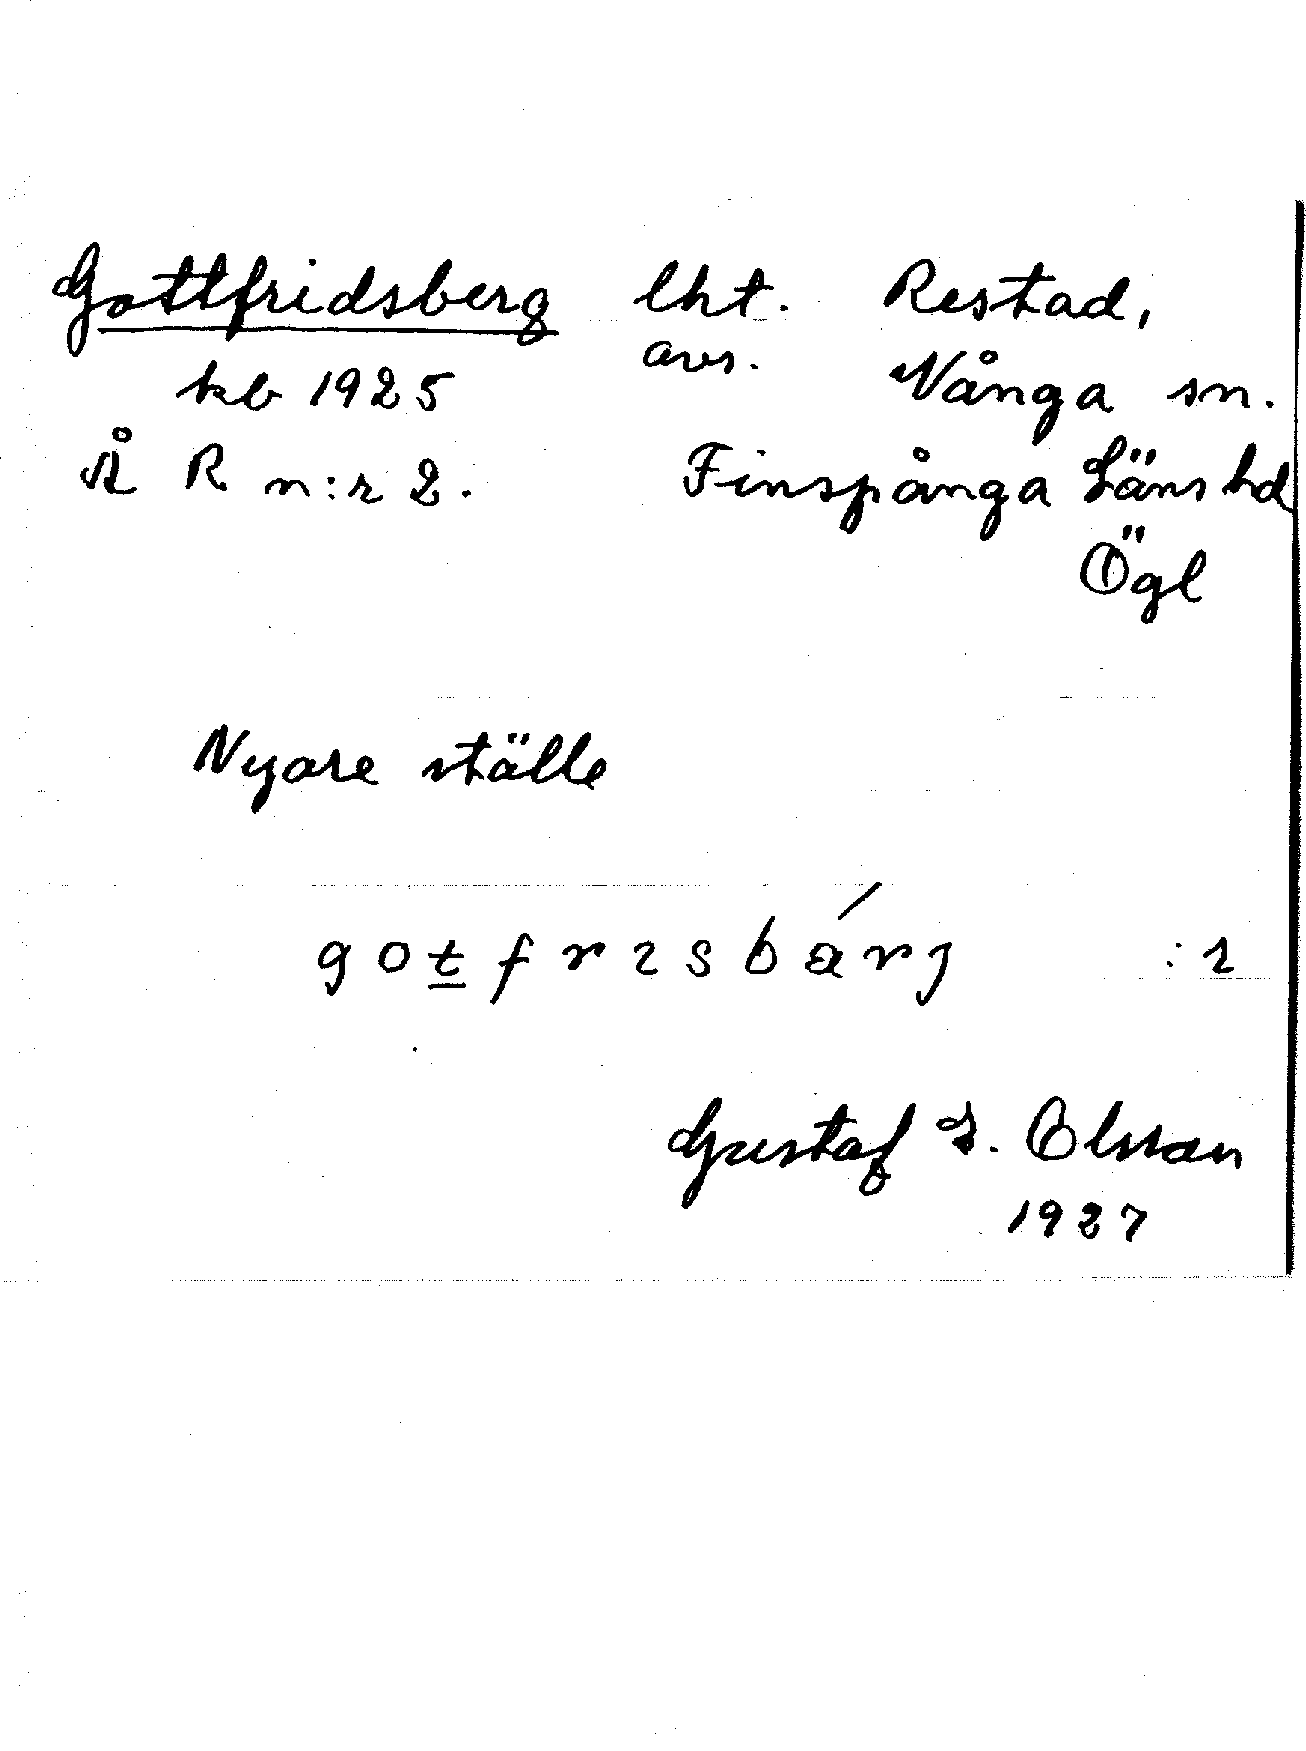 Gottfridsberg lht. Restad,
kb 1925 avs. Vånga sn.
Å R n:r 2. Finspånga Läns hd
Ögl
Nyare ställe
gotfrisbärj :1
Gustaf I. Olsson
1927